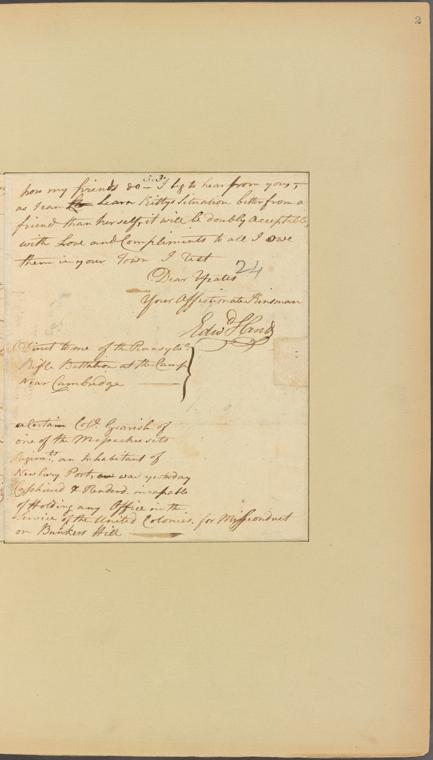 2
33
how my friends do — I beg to hear from you,
as I can Learn Kittys Situation better from a
friend than herself, it will be doubly acceptable,
with Love and Compliments to all I owe
them in your Town I rest
24
Dear Yeates
Your Affectionate Kinsman
Edwd Hand
Direct to me of the Pennsylva
Rifle Battalion at the Camp
Near Cambridge
a Certain Coll. Gearish of
one of the Massachusets
Regimts. an Inhabitant of
Newbury Port, was yesterday
Cashiered & Renderd incapable
of Holding any Office in the
Service of the United Colonies, for Missconduct
on Bunkers Hill